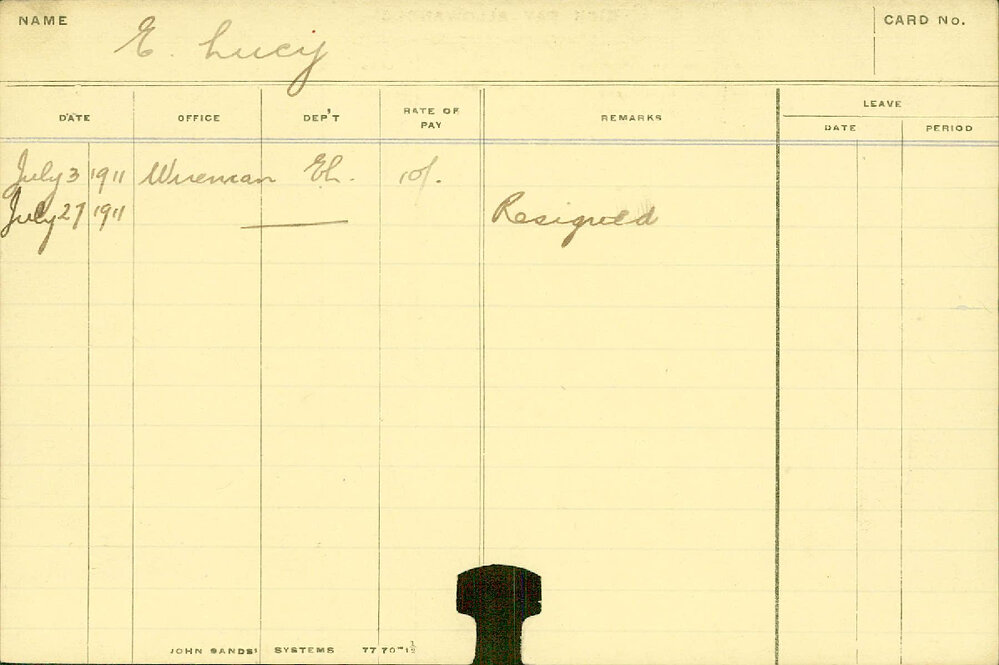 NAME E. Lucy CARD No.
DATE OFFICE DEP'T RATE OF PAY REMARKS LEAVE
DATE PERIOD
July 3 1911 Wireman Eh. 10/.
July 27 1911 —— Resigned
JOHN SANDS' SYSTEMS 7770